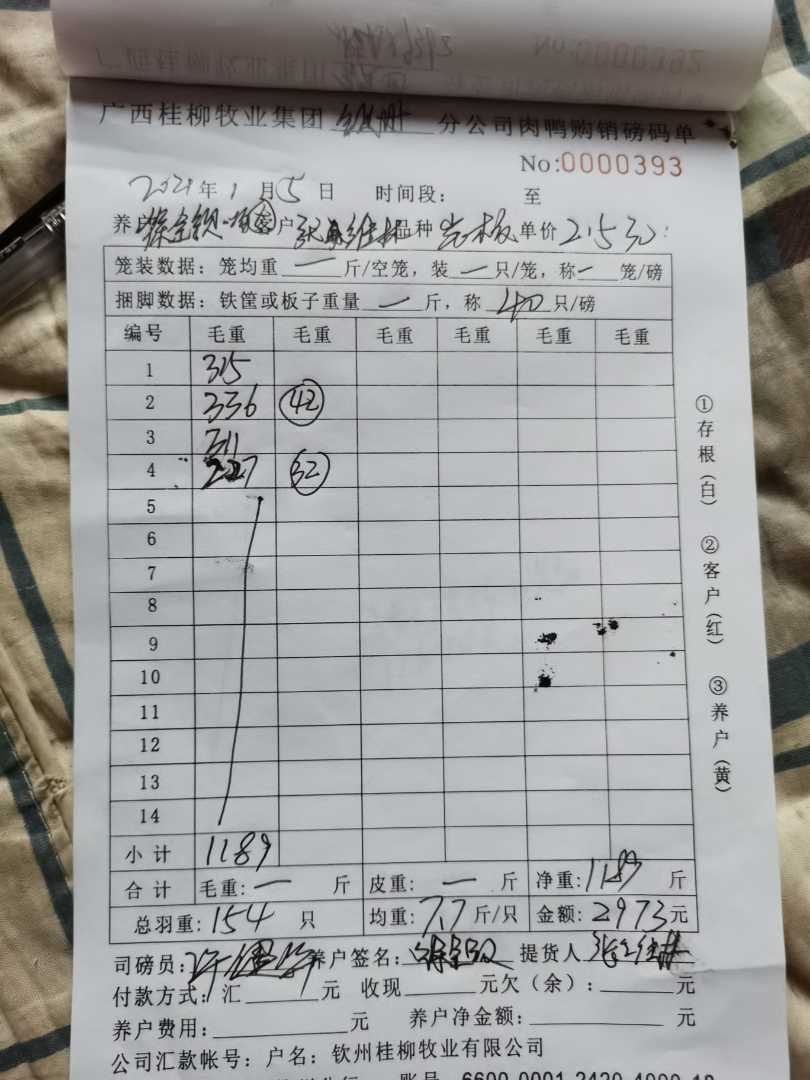 广西桂柳牧业集团钦州分公司肉鸭购销磅码单
No:0000393
2021年1月5日 时间段: 至
养户 客户 品种 单价2.5元
笼装数据:笼均重一斤/空笼,装一只/笼,称一笼/磅
捆脚数据:铁筐或板子重量一斤,称40只/磅
编号 毛重 毛重 毛重 毛重 毛重 毛重
1 315
2 336 42
3 311
4 227 32
5
6
7
8
9
10
11
12
13
14
小计 1189
合计 毛重:一斤 皮重:一斤 净重:1189斤
总羽重:154只 均重:7.7斤/只 金额:2973元
司磅员: 养户签名: 提货人
付款方式:汇 元 收现 元欠(余): 元
养户费用: 元 养户净金额: 元
公司汇款帐号:户名:钦州桂柳牧业有限公司
①存根(白) ②客户(红) ③养户(黄)